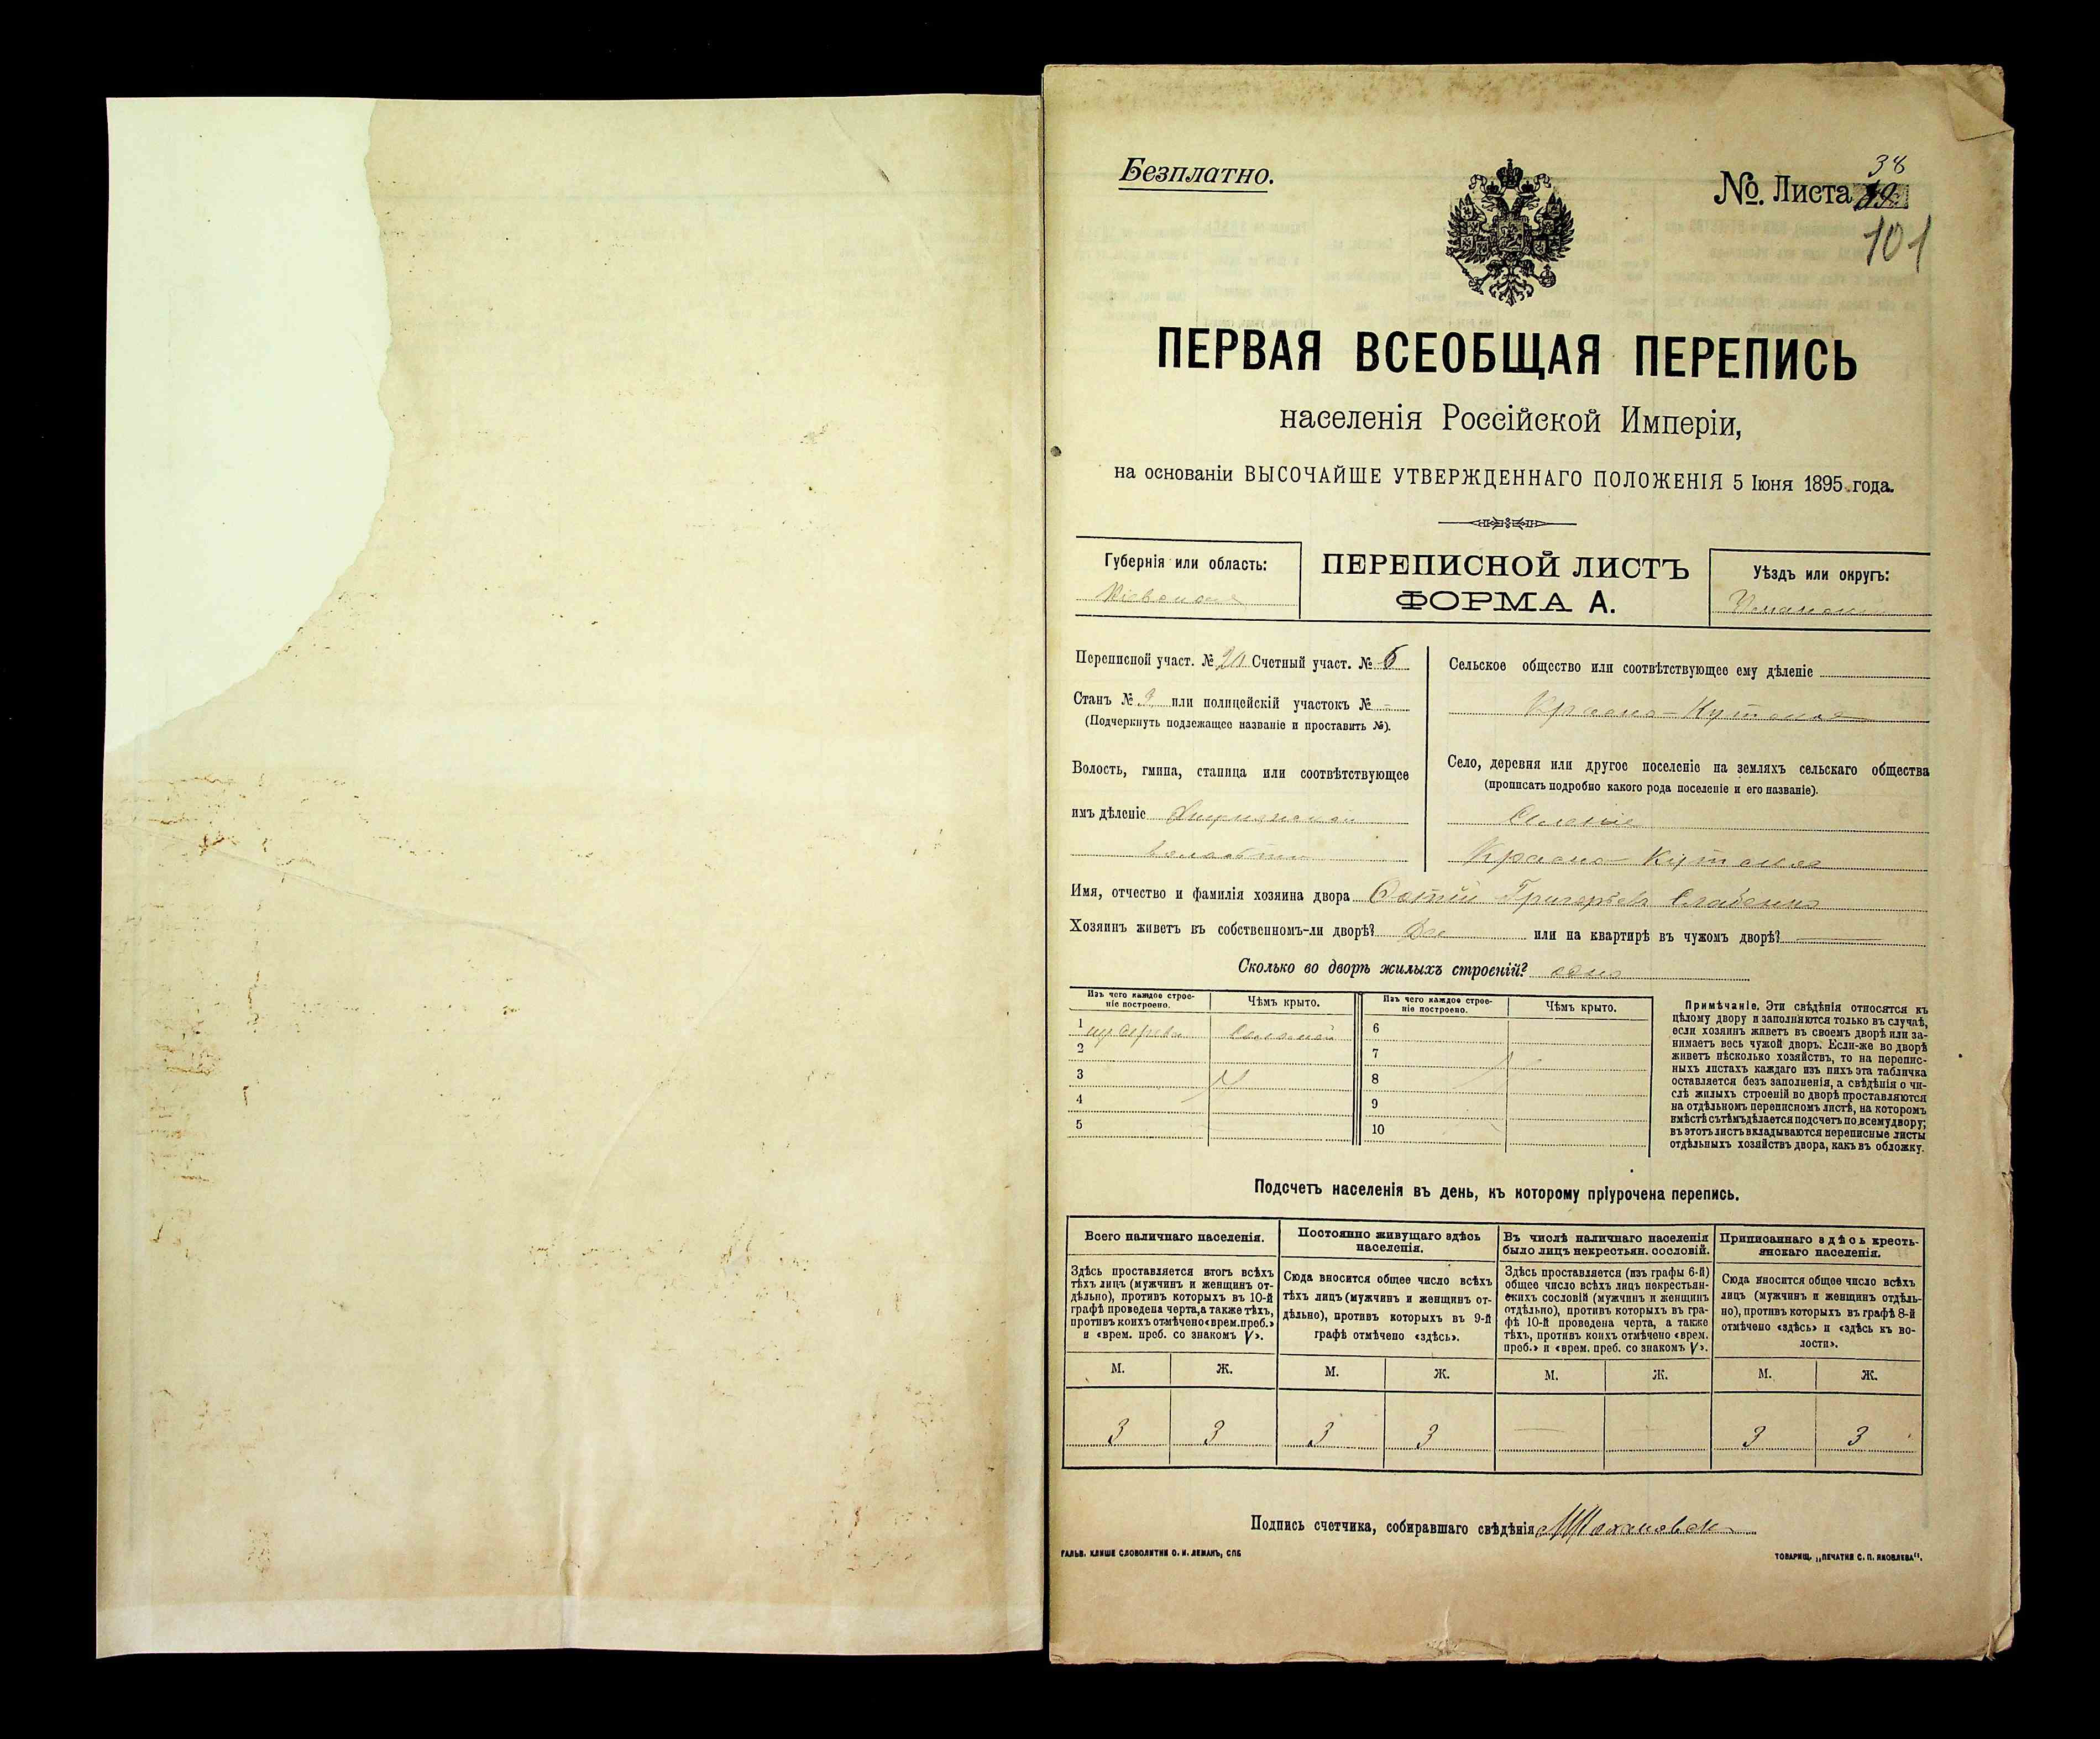 Безплатно.
№. Листа 38
101
ПЕРВАЯ ВСЕОБЩАЯ ПЕРЕПИСЬ
населенія Россійской Имперіи,
на основаніи ВЫСОЧАЙШЕ УТВЕРЖДЕННАГО ПОЛОЖЕНІЯ 5 Іюня 1895 года.
Губернія или область:
Кіевская
ПЕРЕПИСНОЙ ЛИСТЪ
ФОРМА А.
Уѣздъ или округъ:
Уманскій
Переписной участ. № 20 Счетный участ. № 6
Станъ № 3 или полицейскій участокъ № -
(Подчеркнуть подлежащее названіе и проставить №).
Волость, гмина, станица или соотвѣтствующее
имъ дѣленіе
волости
Сельское общество или соотвѣтствующее ему дѣленіе
Красно-Кутское
Село, деревня или другое поселеніе на земляхъ сельскаго общества
(прописать подробно какого рода поселеніе и его названіе).
Селеніе
Красно-Кутское
Имя, отчество и фамилія хозяина двора Григорьевъ
Хозяинъ живетъ въ собственномъ-ли дворѣ? Да или на квартирѣ въ чужомъ дворѣ?
Сколько во дворѣ жилыхъ строеній? одно
Изъ чего каждое строе-
ніе построено.
Чѣмъ крыто.
Изъ чего каждое строе-
ніе построено.
Чѣмъ крыто.
1 изъ дерева соломой
2
3
4
5
6
7
8
9
10
Примѣчаніе. Эти свѣдѣнія относятся къ
цѣлому двору и заполняются только въ случаѣ,
если хозяинъ живетъ въ своемъ дворѣ или за-
нимаетъ весь чужой дворъ. Если-же во дворѣ
живетъ нѣсколько хозяйствъ, то на перепис-
ныхъ листахъ каждаго изъ нихъ эта табличка
оставляется безъ заполненія, а свѣдѣнія о чи-
слѣ жилыхъ строеній во дворѣ проставляются
на отдѣльномъ переписномъ листѣ, на которомъ
вмѣстѣ съ тѣмъ дѣлается подсчетъ по всему двору;
въ этотъ листъ вкладываются переписные листы
отдѣльныхъ хозяйствъ двора, какъ въ обложку.
Подсчетъ населенія въ день, къ которому пріурочена перепись.
Всего наличнаго населенія.
Здѣсь проставляется итогъ всѣхъ
тѣхъ лицъ (мужчинъ и женщинъ от-
дѣльно), противъ которыхъ въ 10-й
графѣ проведена черта, а также тѣхъ,
противъ коихъ отмѣчено «врем. преб.»
и «врем. преб. со знакомъ V».
Постоянно живущаго здѣсь
населенія.
Сюда вносится общее число всѣхъ
тѣхъ лицъ (мужчинъ и женщинъ от-
дѣльно), противъ которыхъ въ 9-й
графѣ отмѣчено «здѣсь».
Въ числѣ наличнаго населенія
было лицъ некрестьян. сословій.
Здѣсь проставляется (изъ графы 6-й)
общее число всѣхъ лицъ некрестьян-
скихъ сословій (мужчинъ и женщинъ
отдѣльно), противъ которыхъ въ гра-
фѣ 10-й проведена черта, а также
тѣхъ, противъ коихъ отмѣчено «врем.
преб.» и «врем. преб. со знакомъ V».
Приписаннаго здѣсь кресть-
янскаго населенія.
Сюда вносится общее число всѣхъ
лицъ (мужчинъ и женщинъ отдѣль-
но), противъ которыхъ въ графѣ 8-й
отмѣчено «здѣсь» и «здѣсь къ во-
лости».
М. Ж. М. Ж. М. Ж. М. Ж.
3 3 3 3 — — 3 3
Подпись счетчика, собиравшаго свѣдѣнія
ГАЛЬВ. КЛИШЕ СЛОВОЛИТНИ О. И. ЛЕМАНЪ, СПБ
ТОВАРИЩ. „ПЕЧАТНЯ С. П. ЯКОВЛЕВА".